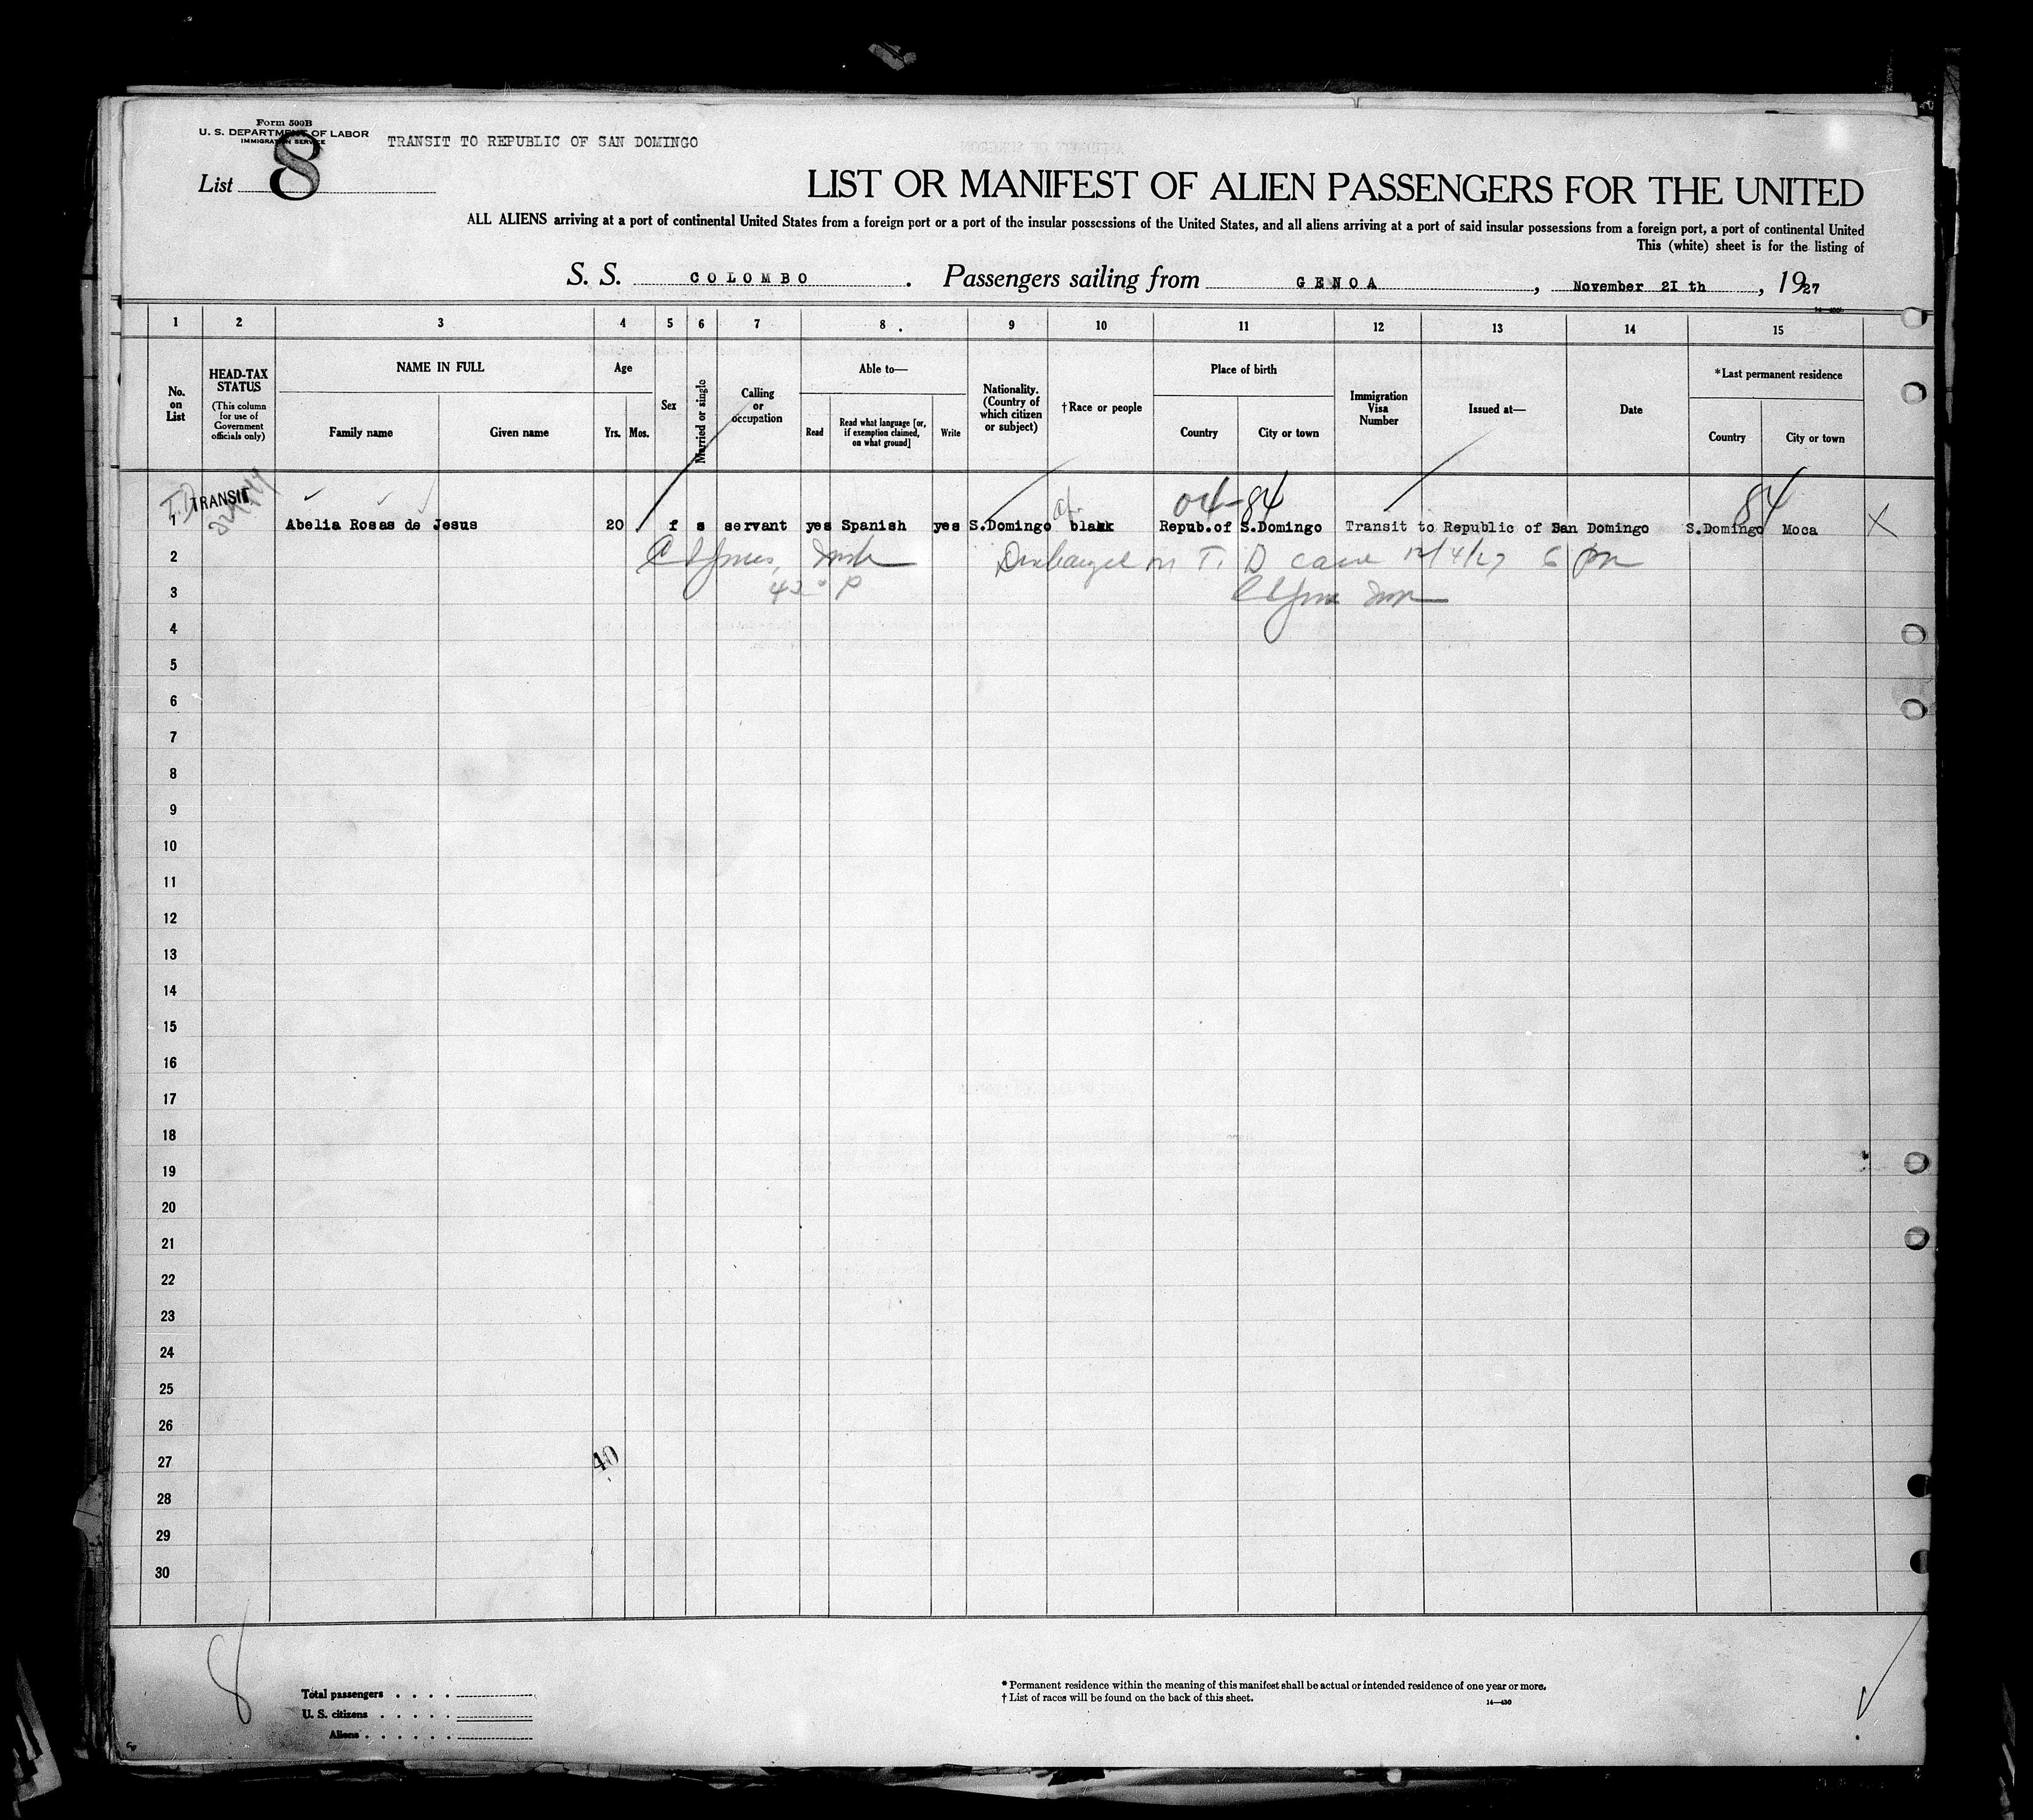 Form 500B
U. S. DEPARTMENT OF LABOR
IMMIGRATION SERVICE
TRANSIT TO REPUBLIC OF SAN DOMINGO
List 8
LIST OR MANIFEST OF ALIEN PASSENGERS FOR THE UNITED
ALL ALIENS arriving at a port of continental United States from a foreign port or a port of the insular possessions of the United States, and all aliens arriving at a port of said insular possessions from a foreign port, a port of continental United
This (white) sheet is for the listing of
S. S. COLOMBO . Passengers sailing from GENOA , November 2I th , 1927
1 2 3 4 5 6 7 8 . 9 10 11 12 13 14 15
No. on List
HEAD-TAX STATUS
(This column for use of Government officials only)
NAME IN FULL
Family name
Given name
Age
Yrs. Mos.
Sex
Married or single
Calling or occupation
Able to—
Read
Read what language [or, if exemption claimed, on what ground]
Write
Nationality. (Country of which citizen or subject)
† Race or people
Place of birth
Country
City or town
Immigration Visa Number
Issued at—
Date
*Last permanent residence
Country
City or town
TRANSIT
04-84
84
1 Abelia Rosas de Jesus 20 f s servant yes Spanish yes S.Domingo black Repub.of S.Domingo Transit to Republic of San Domingo S.Domingo Moca X
2 Discharged on T. D case 12/4/27 6 pm
3
4
5
6
7
8
9
10
11
12
13
14
15
16
17
18
19
20
21
22
23
24
25
26
27 40
28
29
30
8
Total passengers . . . .
U. S. citizens . . . . .
Aliens . . . . . .
* Permanent residence within the meaning of this manifest shall be actual or intended residence of one year or more.
† List of races will be found on the back of this sheet.
14—430